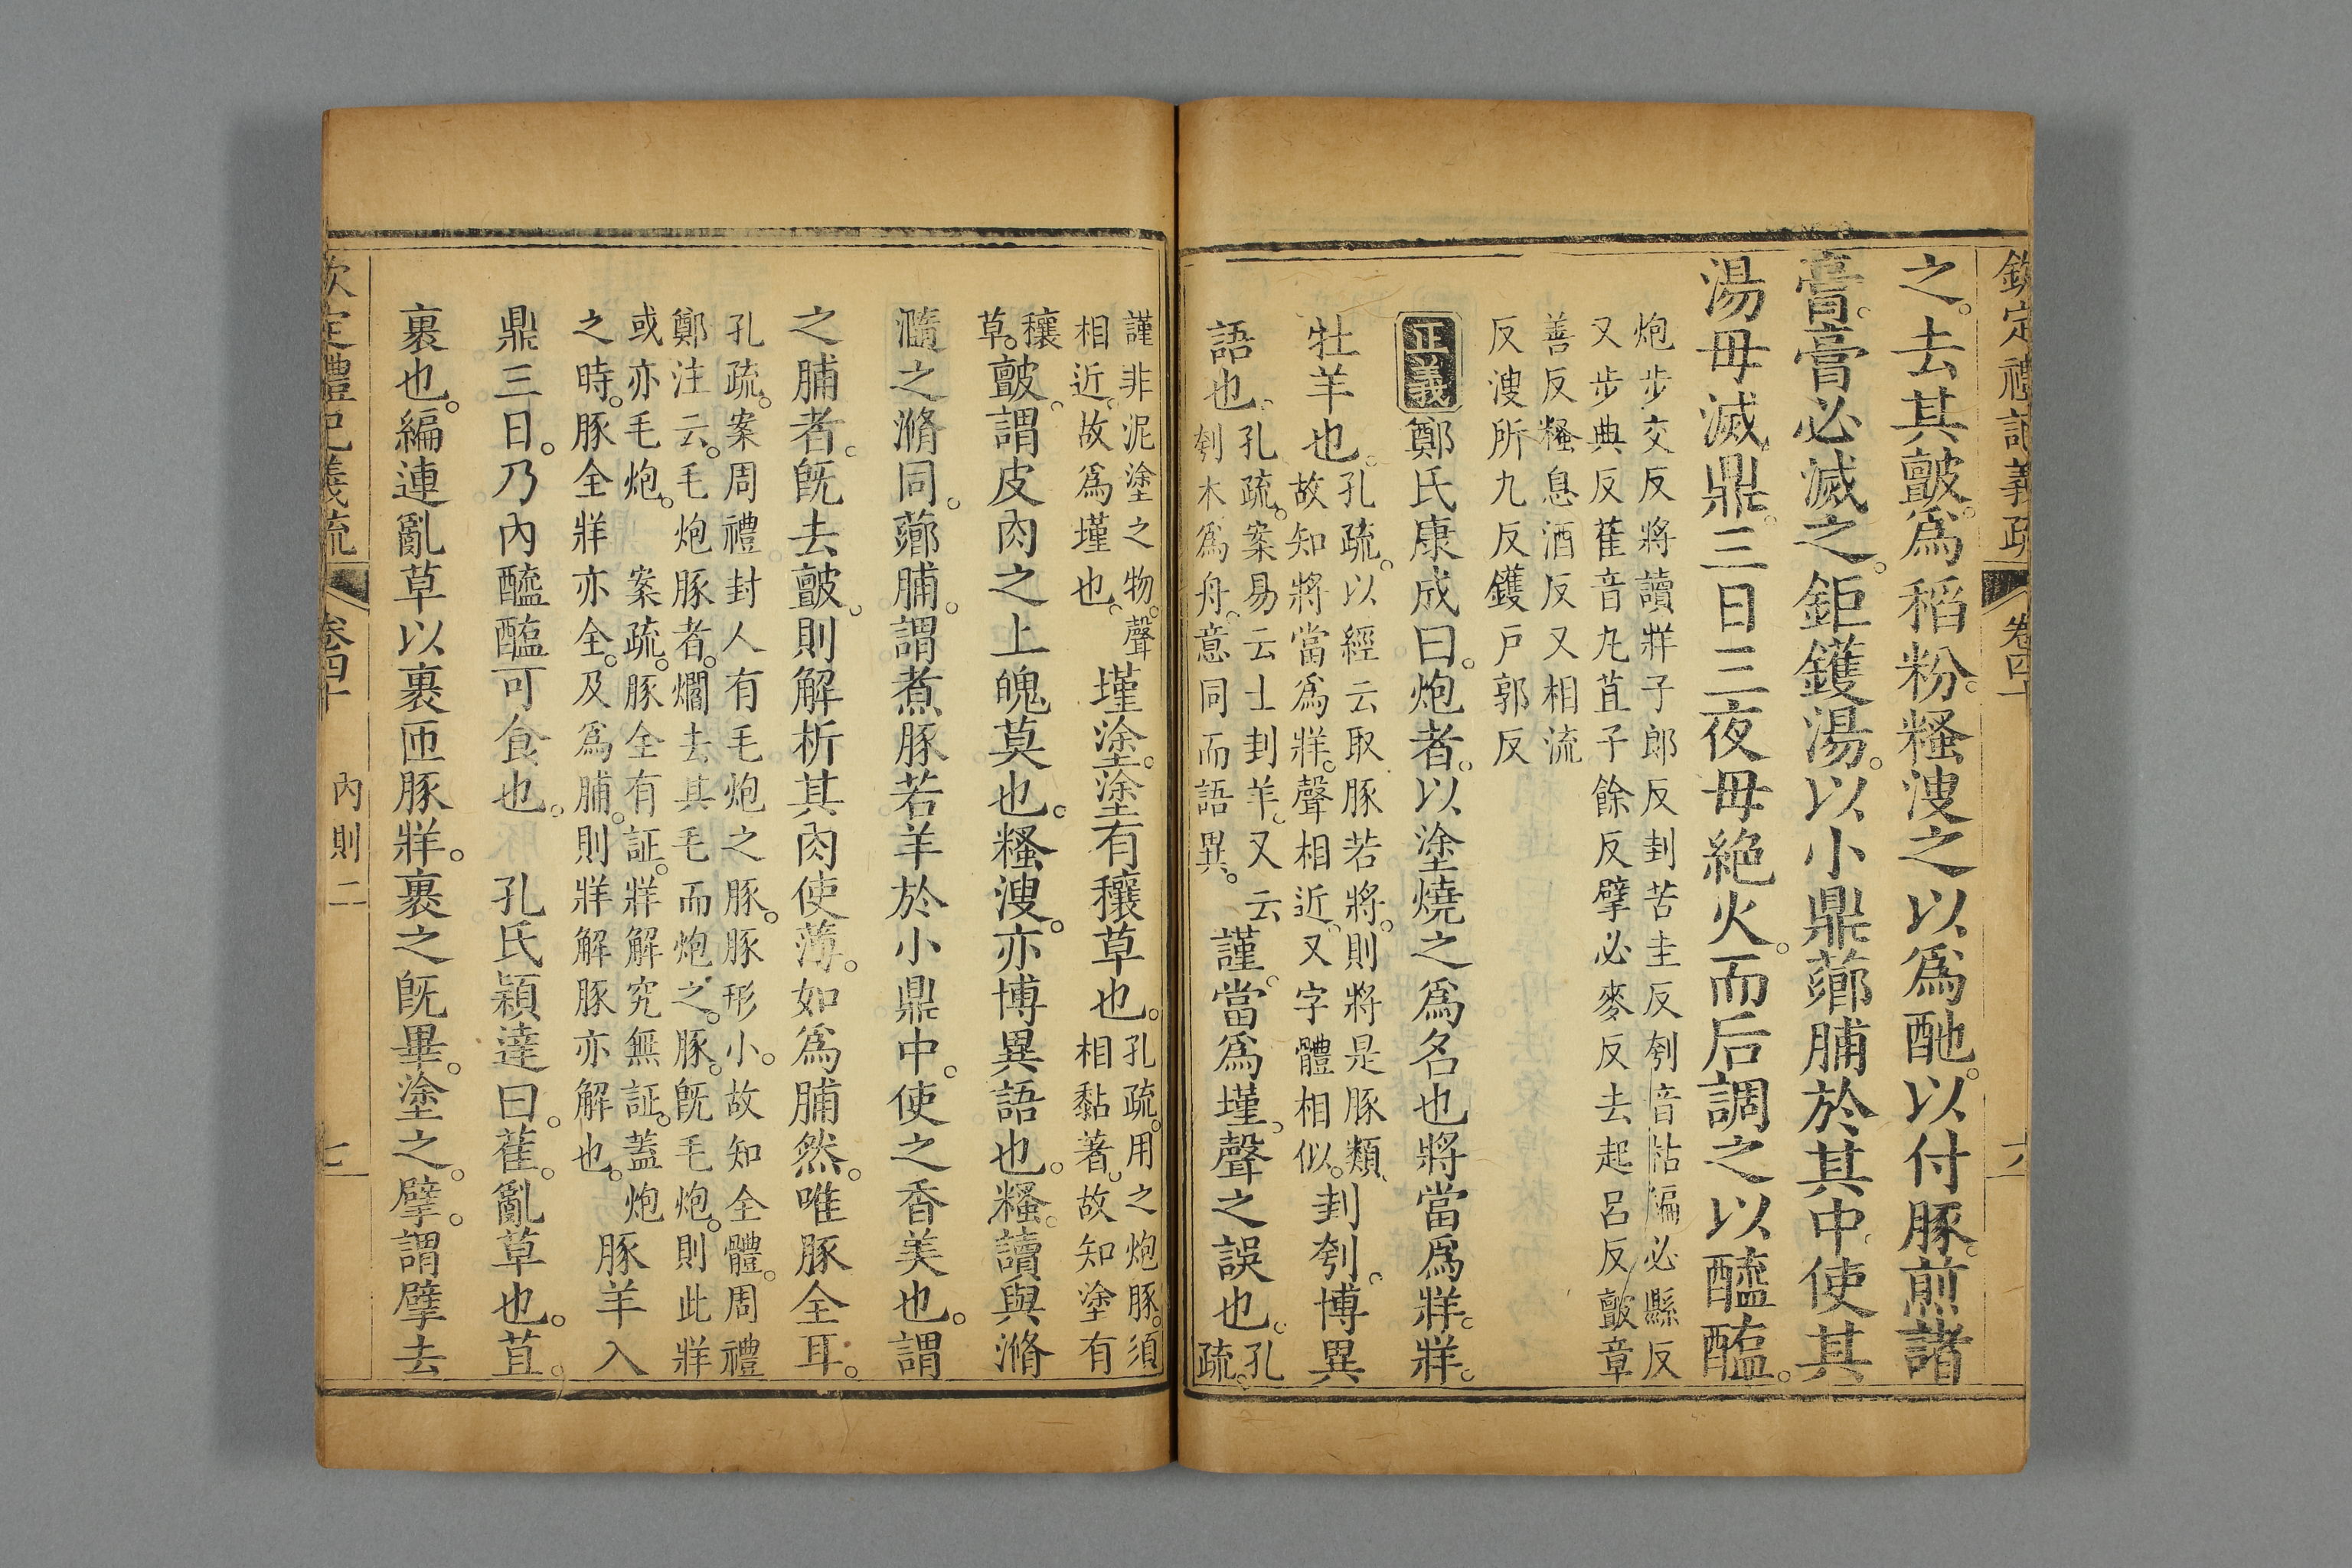 欽定禮記義疏 卷四十 六
之。去其皽。爲稻粉。糔溲之以爲酏。以付豚。煎諸
膏。膏必滅之。鉅鑊湯。以小鼎薌脯於其中。使其
湯毋滅鼎。三日三夜毋絶火。而后調之以醯醢。
炮步交反將讀牂子郎反刲苦圭反刳音枯徧必縣反
又步典反萑音丸苴子餘反擘必麥反去起呂反皽章
善反糔息酒反又相流
反溲所九反鑊戶郭反
正義 鄭氏康成曰。炮者。以塗燒之爲名也將當爲牂。牂。
牡羊也。
孔疏。以經云取豚若將。則將是豚類、
故知將當爲牂。聲相近、又字體相似。
刲刳。博異
語也。
孔疏。案易云士刲羊。又云
刳木爲舟。意同而語異。
謹。當爲墐。聲之誤也。
孔
疏。
謹非泥塗之物。聲
相近。故爲墐也。
墐塗。塗有穰草也。
孔疏。用之炮豚。須
相黏著。故知塗有
穰
草。
皽。謂皮肉之上魄莫也。糔溲。亦博異語也。糔。讀與滫
瀡之滫同。薌脯。謂煮豚若羊於小鼎中。使之香美也。謂
之脯者。旣去皽。則解析其肉使薄。如爲脯然。唯豚全耳。
孔疏。案周禮封人有毛炮之豚。豚形小。故知全體。周禮
鄭注云。毛炮豚者。爓去其毛而炮之。豚。旣毛炮。則此牂
或亦毛炮。 案疏。豚全有証。牂解究無証。蓋炮
之時。豚全牂亦全。及爲脯。則牂解豚亦解也。
豚羊入
鼎三日。乃內醯醢可食也。 孔氏穎達曰。萑。亂草也。苴。
裹也。編連亂草以裹匝豚牂。裹之旣畢。塗之。擘。謂擘去
欽定禮記義疏 卷四十 內則二 七